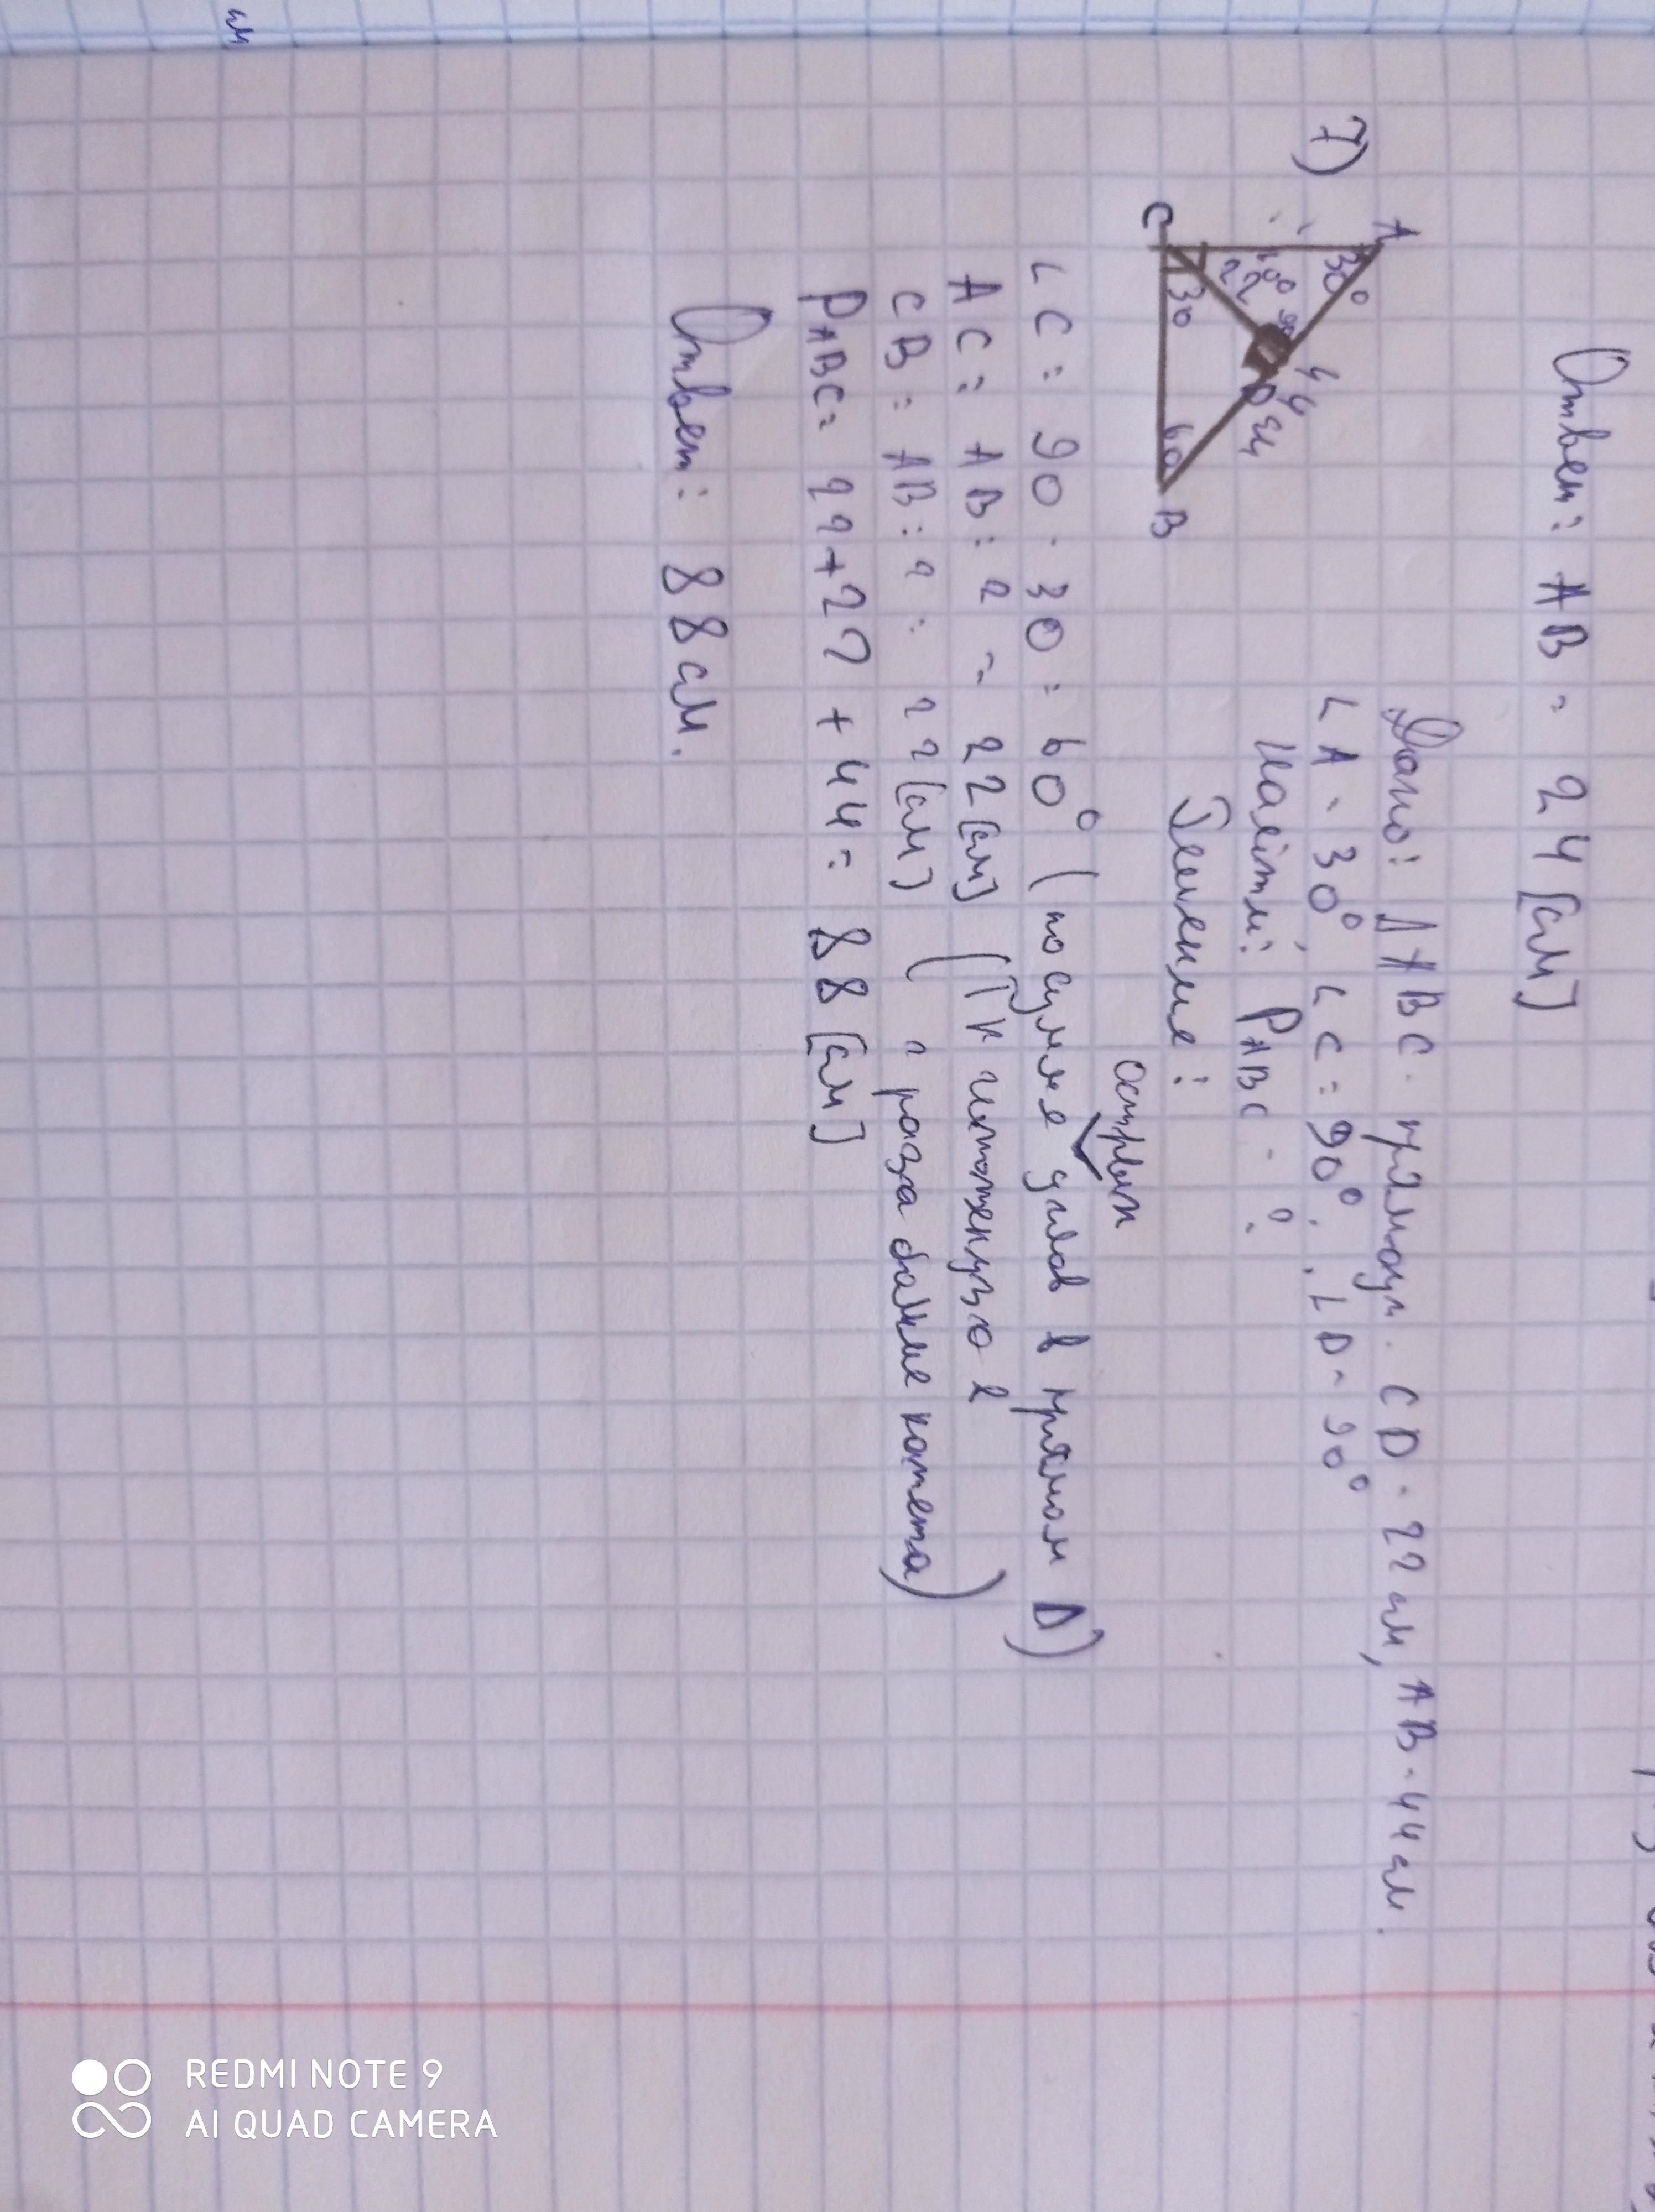 Ответ: AB = 24 [см]
7)
Дано: Δ ABC - прямоуг. CD - 22 см, AB - 44 см.
∟A - 30°, ∟C = 90°. ∟D - 90°
Найти: PABC - ?
Решение:
A
30°
44
90
22
D
см
C
30
60
B
острых
∟C = 90 - 30 = 60° (по сумме углов в прямом Δ)
AC = AB : 2 = 22 [см] (Тк гипотенуза в
CB = AB : 2 = 22 [см] 2 раза больше катета)
PABC = 22 + 22 + 44 = 88 [см]
Ответ: 88 см.
см
REDMI NOTE 9
AI QUAD CAMERA